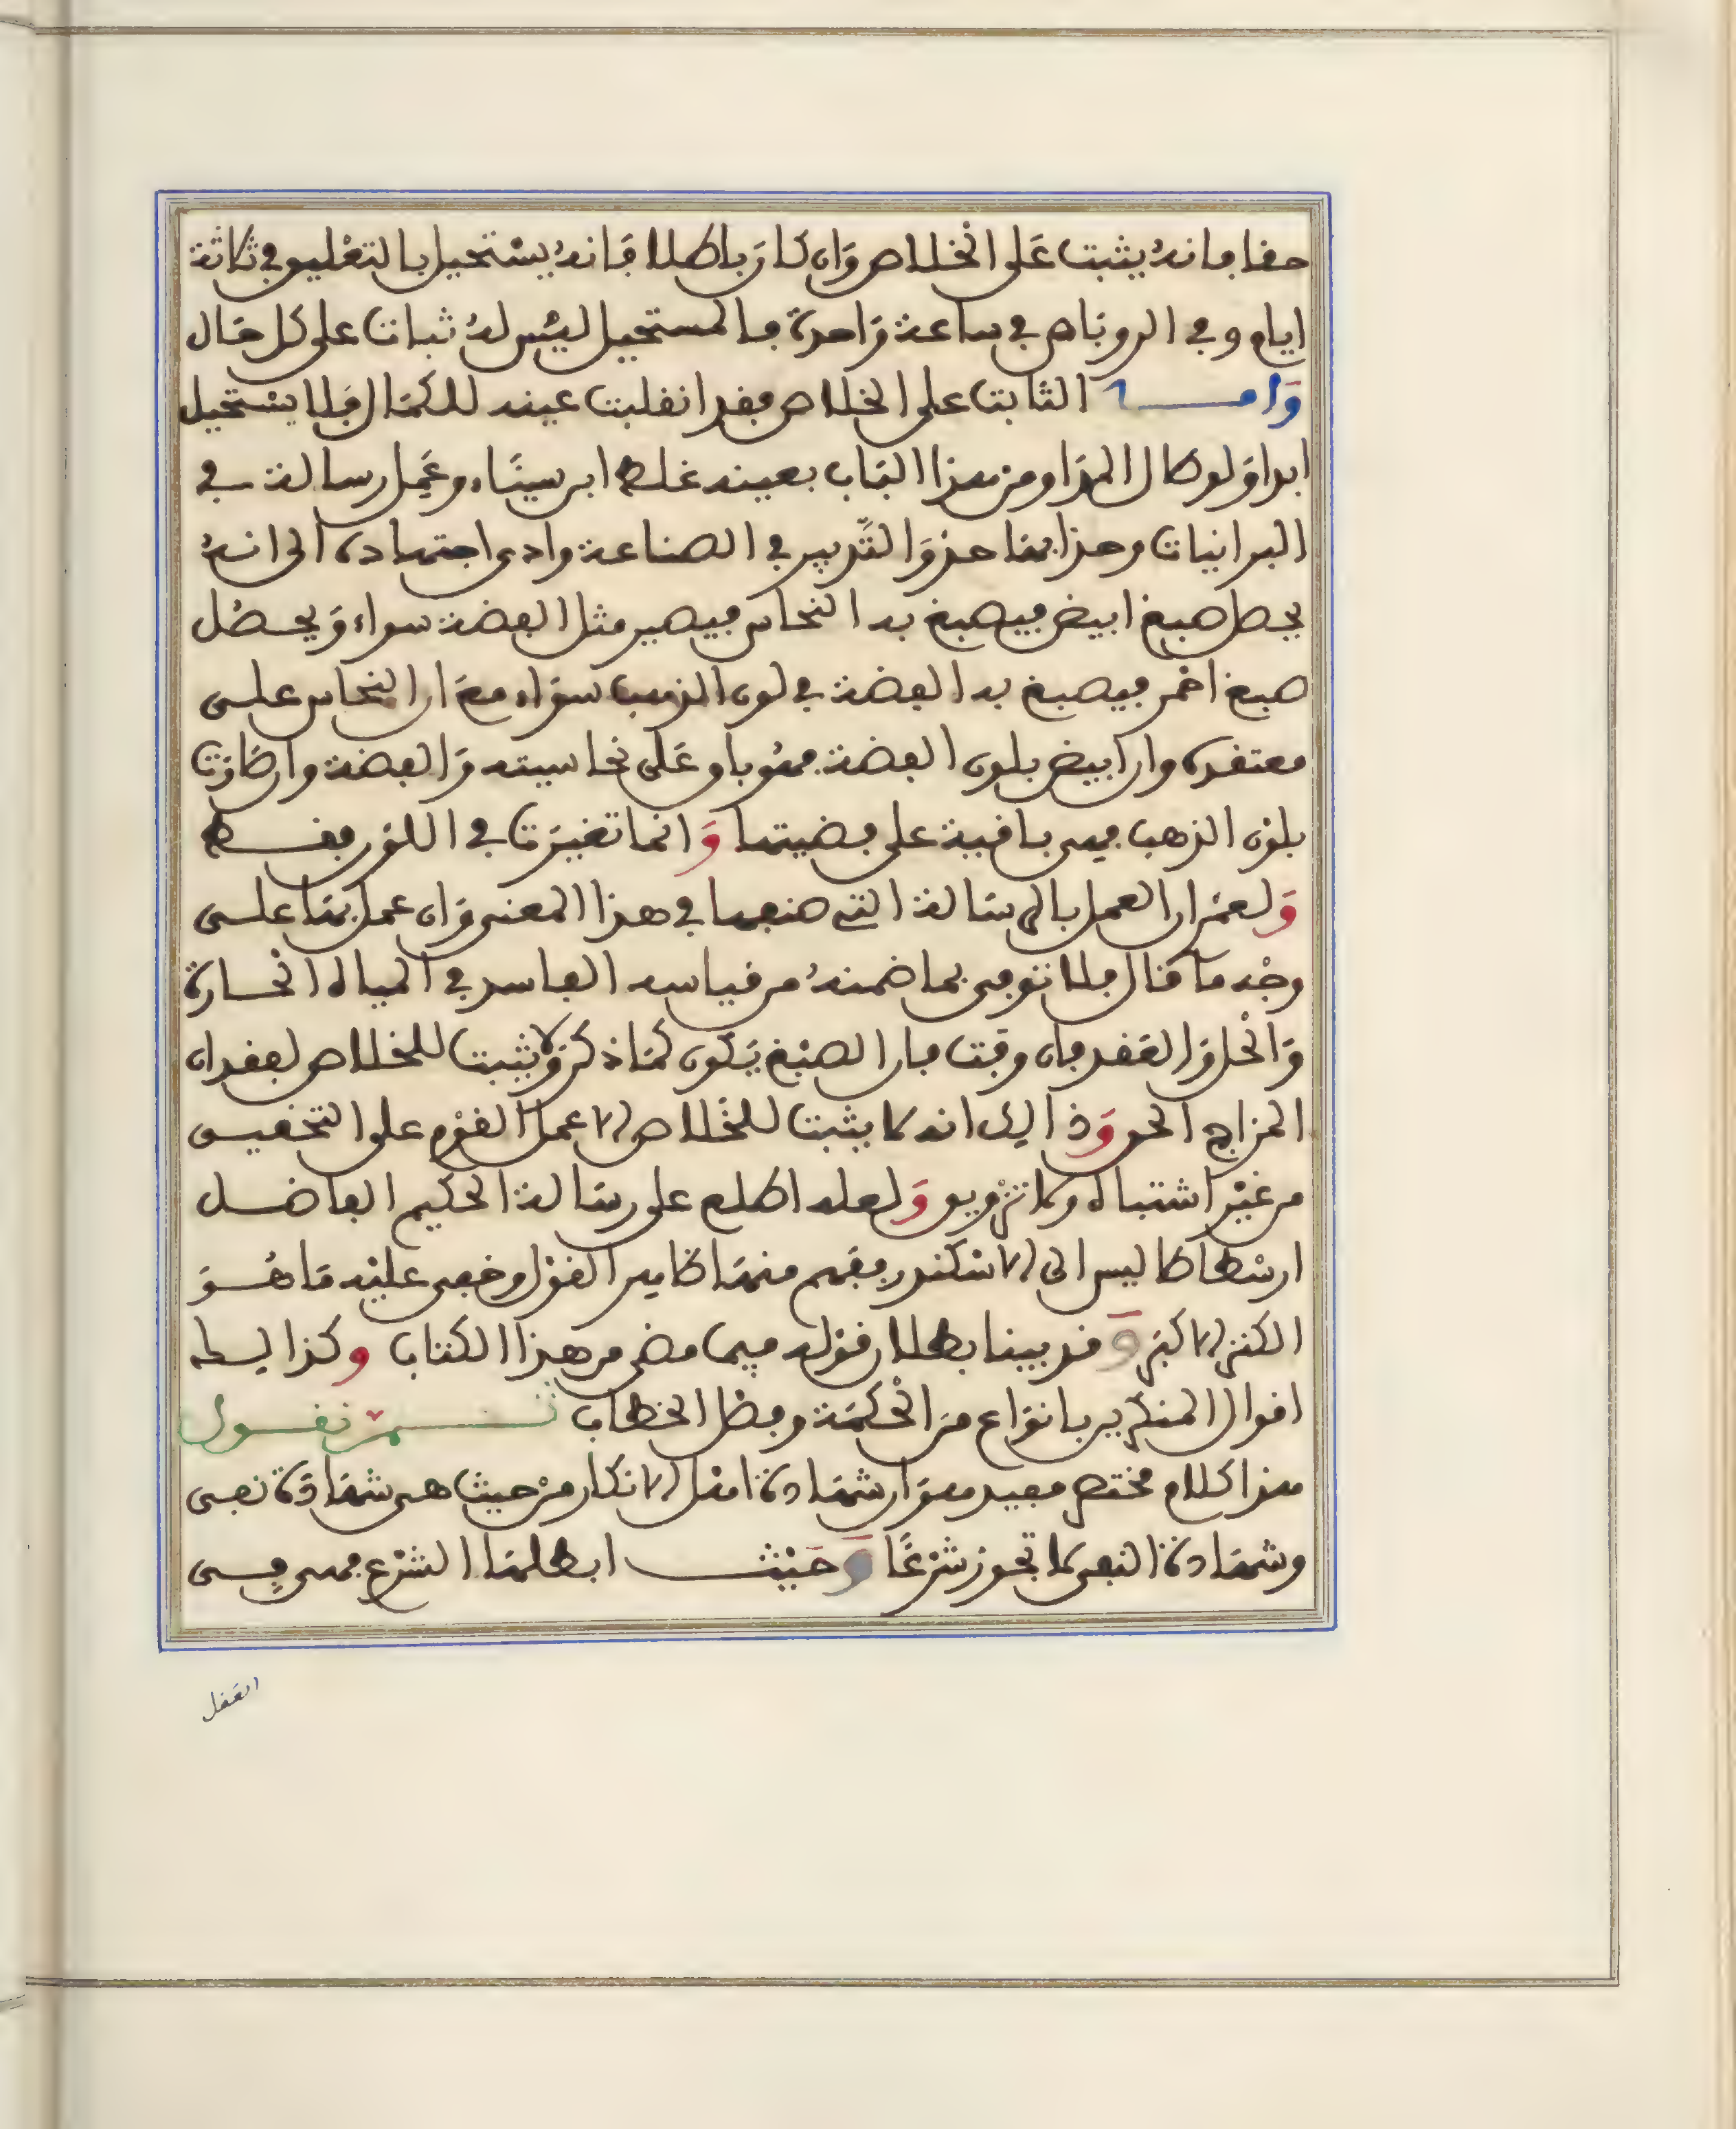 حقا فانه يثبت على الخلاص وان كان باطلا فانه يستحيل بالتعليق في ثلاثة
ايام وفي الروباص في ساعة واحدة فالمستحيل ليس له ثبات على كل حال
وامـــا الثابت على الخلاص فقد انقلبت عينه للكمال فلا يستحيل
ابدا ولو طال المدا ومن هذا الباب بعينه غلط ابن سيناء وعمل رسالة في
البرانيات وهذا بها حذو التدبير في الصناعة وادى اجتهاده الى انه
يحصل صبغ ابيض فيصبغ به النحاس فيصير مثل الفضة سواء ويحصل
صبغ احمر فيصبغ به الفضة في لون الذهب سواء مع ان النحاس على
معتقده وان ابيض بلون الفضة فهو باق على نحاسيته والفضة وان كانت
بلون الذهب فهي باقية على فضيتها وانما تغيرت في اللون فقط
ولعمر ان العمل بالرسالة التي صنعها في هذا المعنى وان عمل بها على
وجه ما قال فلا توفى بما ضمنه من قياسه الفاسد في المياه الحارة
والحل والعقد فان وقت فان الصبغ يكون كما ذكر ولا يثبت للخلاص لفقدان
المزاج الحق وذالك انه لا يثبت للخلاص الا عمل القوم على التحقيق
من غير اشتباه ولا تزويق ولعله اطلع على رسالة الحكيم الفاضل
ارسطاطاليس الى الاسكندر ففهم منها ظاهر القول وخفى عليه ما هو
الكنز الاكبر وقد بينا بطلان قوله فيما مضى من هذا الكتاب وكذالك
اقوال المنكرين بانواع من الحكمة وفصل الخطاب ثـــم نقول
هذا كلام مختصر مفيد وهو ان شهادة اهل الانكار من حيث هى شهادة نفى
وشهادة النفى لا تجوز شرعا وحيث ابطلها الشرع فهى فى
العقل